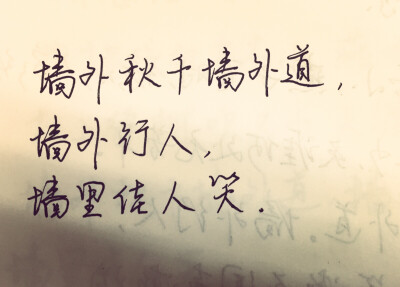 墙外秋千墙外道，
墙外行人，
墙里佳人笑.